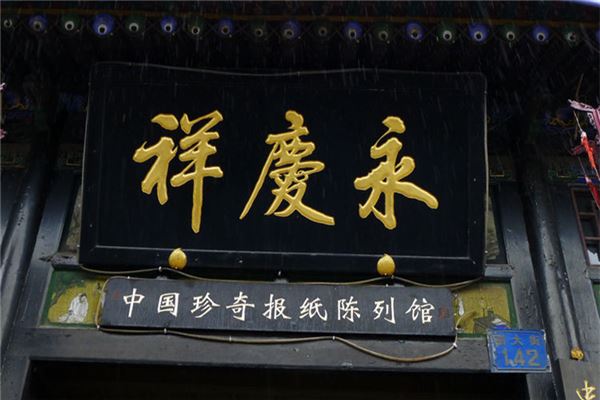 永慶祥
中国珍奇报纸陈列馆
西大街
142